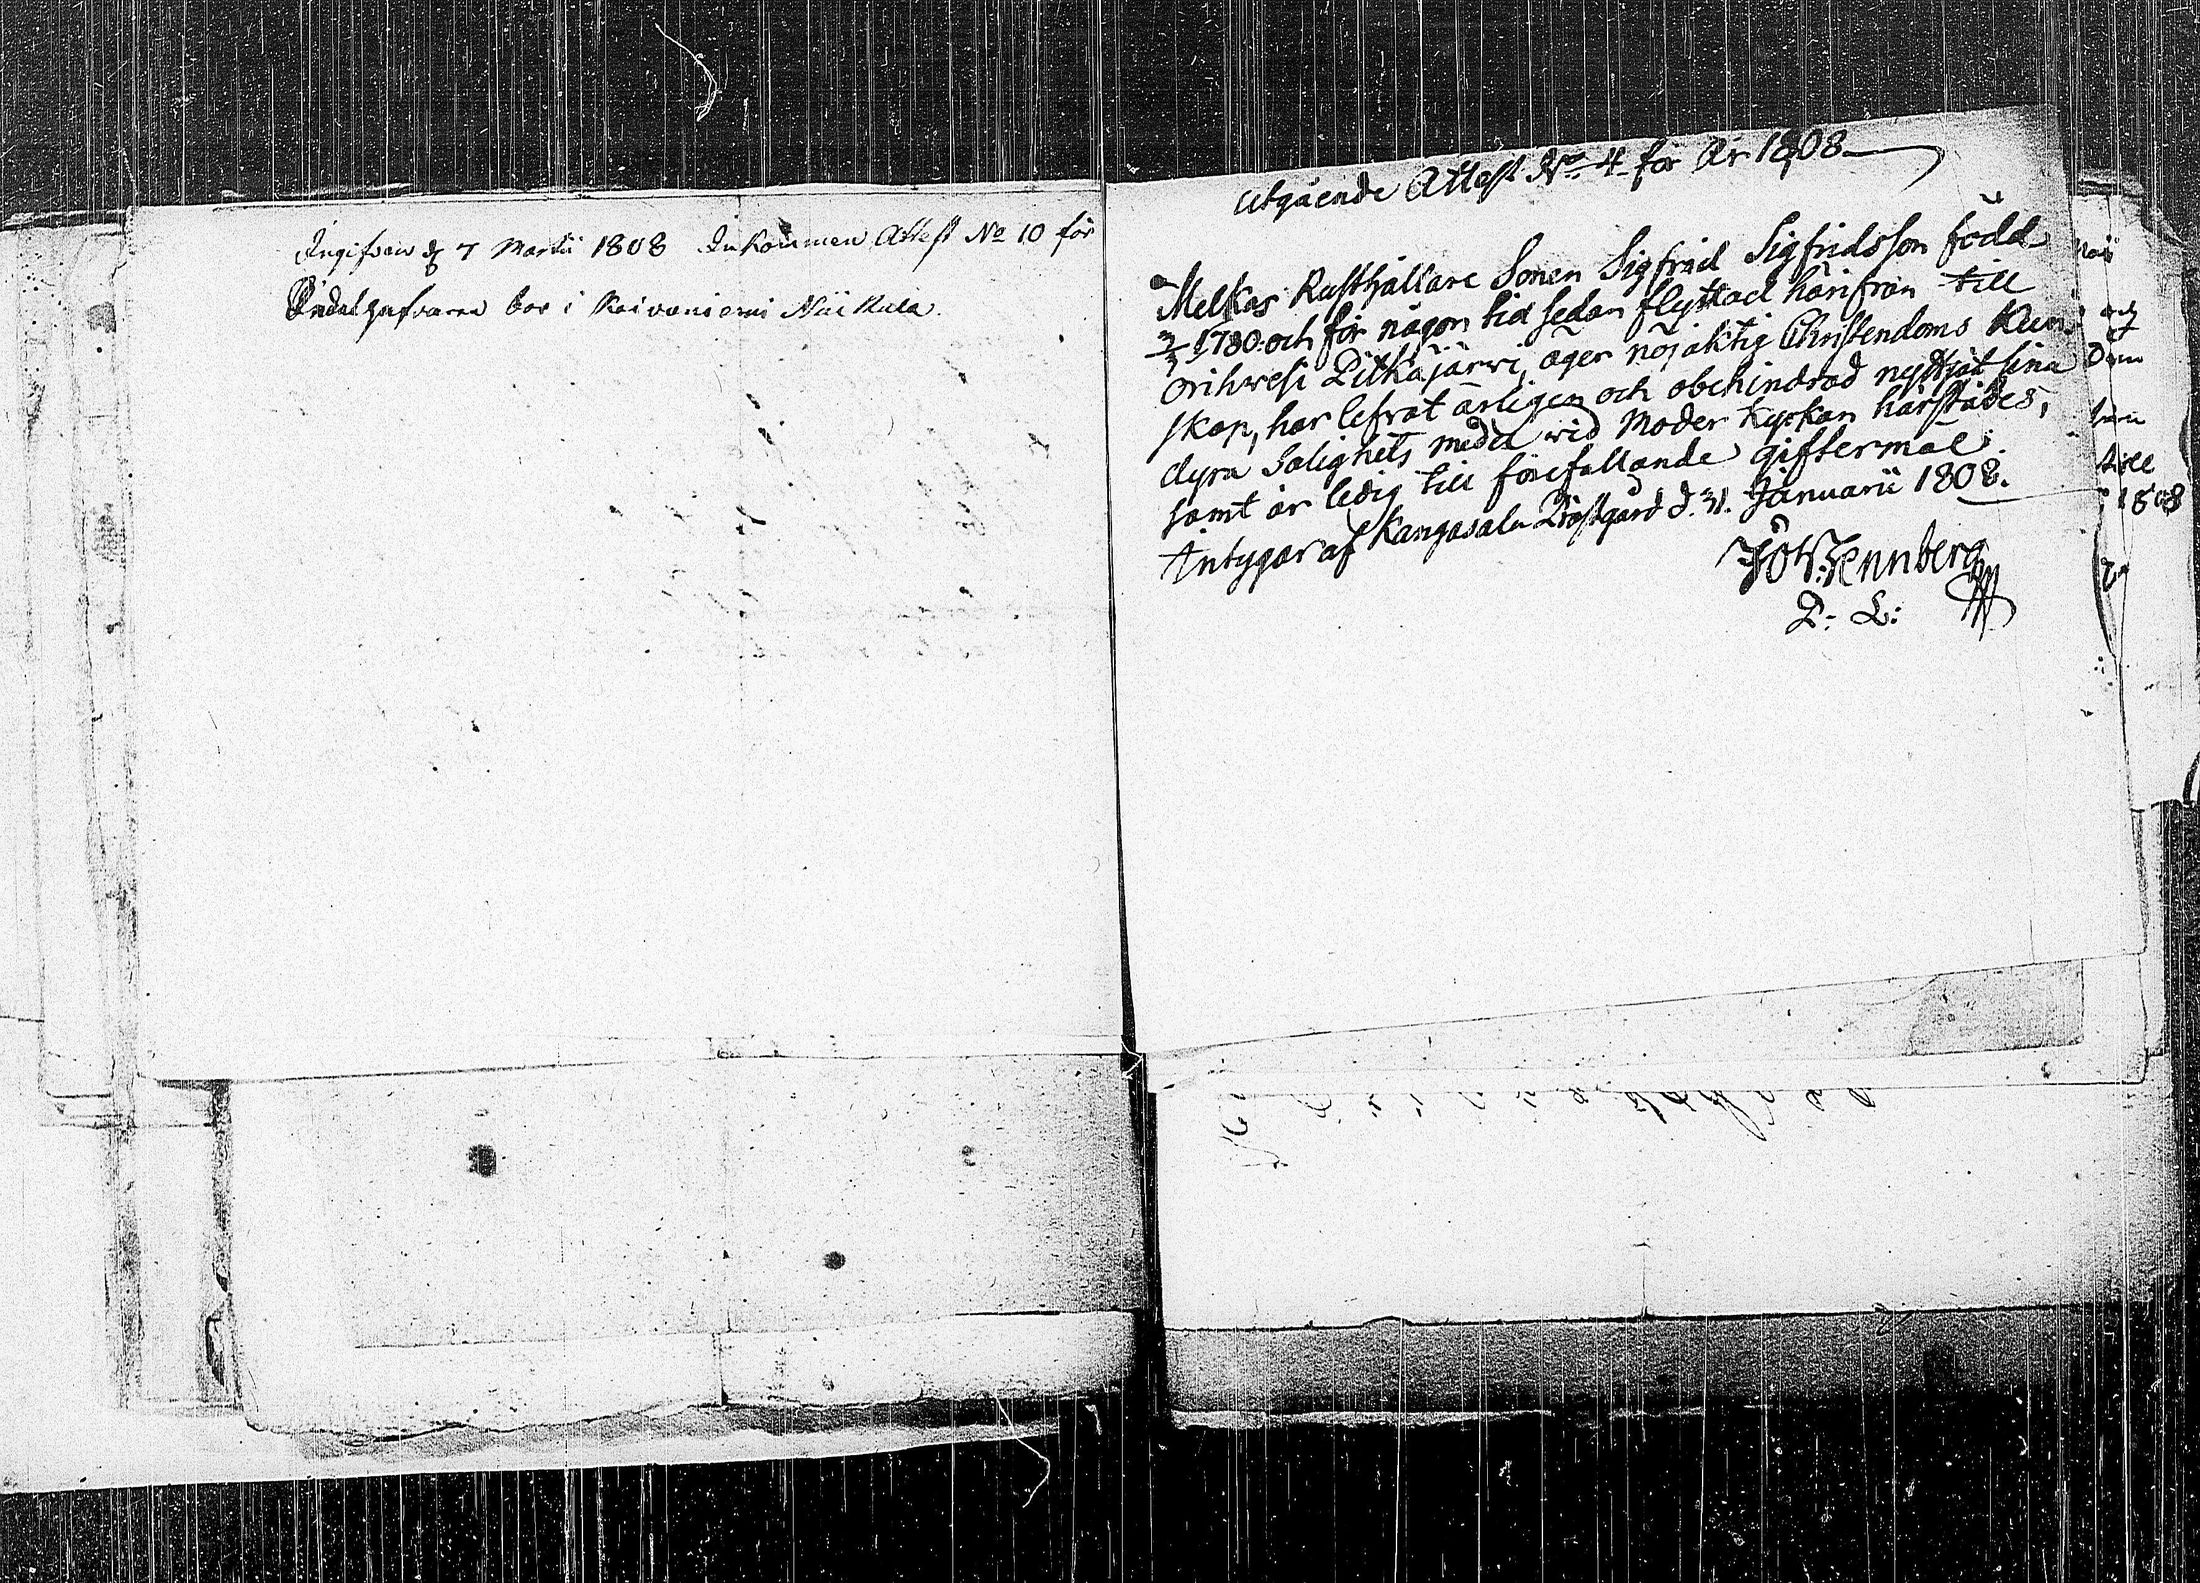 Ingifven d 7 Martii 1808 Inkommen Attest No 10 för
Innehafvaren bor i Koivuniemi Niikula.
Utgående Attest No 4 för År 1808
Melkas Rusthållare Sonen Sigfrid Sigfridsson född
1780. och för någon tid sedan flyttad härifrån till
Orihwesi Pitkäjärwi, äger nöjaktig Christendoms Kun-
skap, har lefvat ärligen och obehindrad nyttjat sina
dyra Salighets medel wid Moder Kyrkan härstädes,
samt är ledig till förefallande giftermål;
Intygar af Kangasala Prästgård d. 31. Januarii 1808.
Joh. Wennberg
P. L:
till
1808